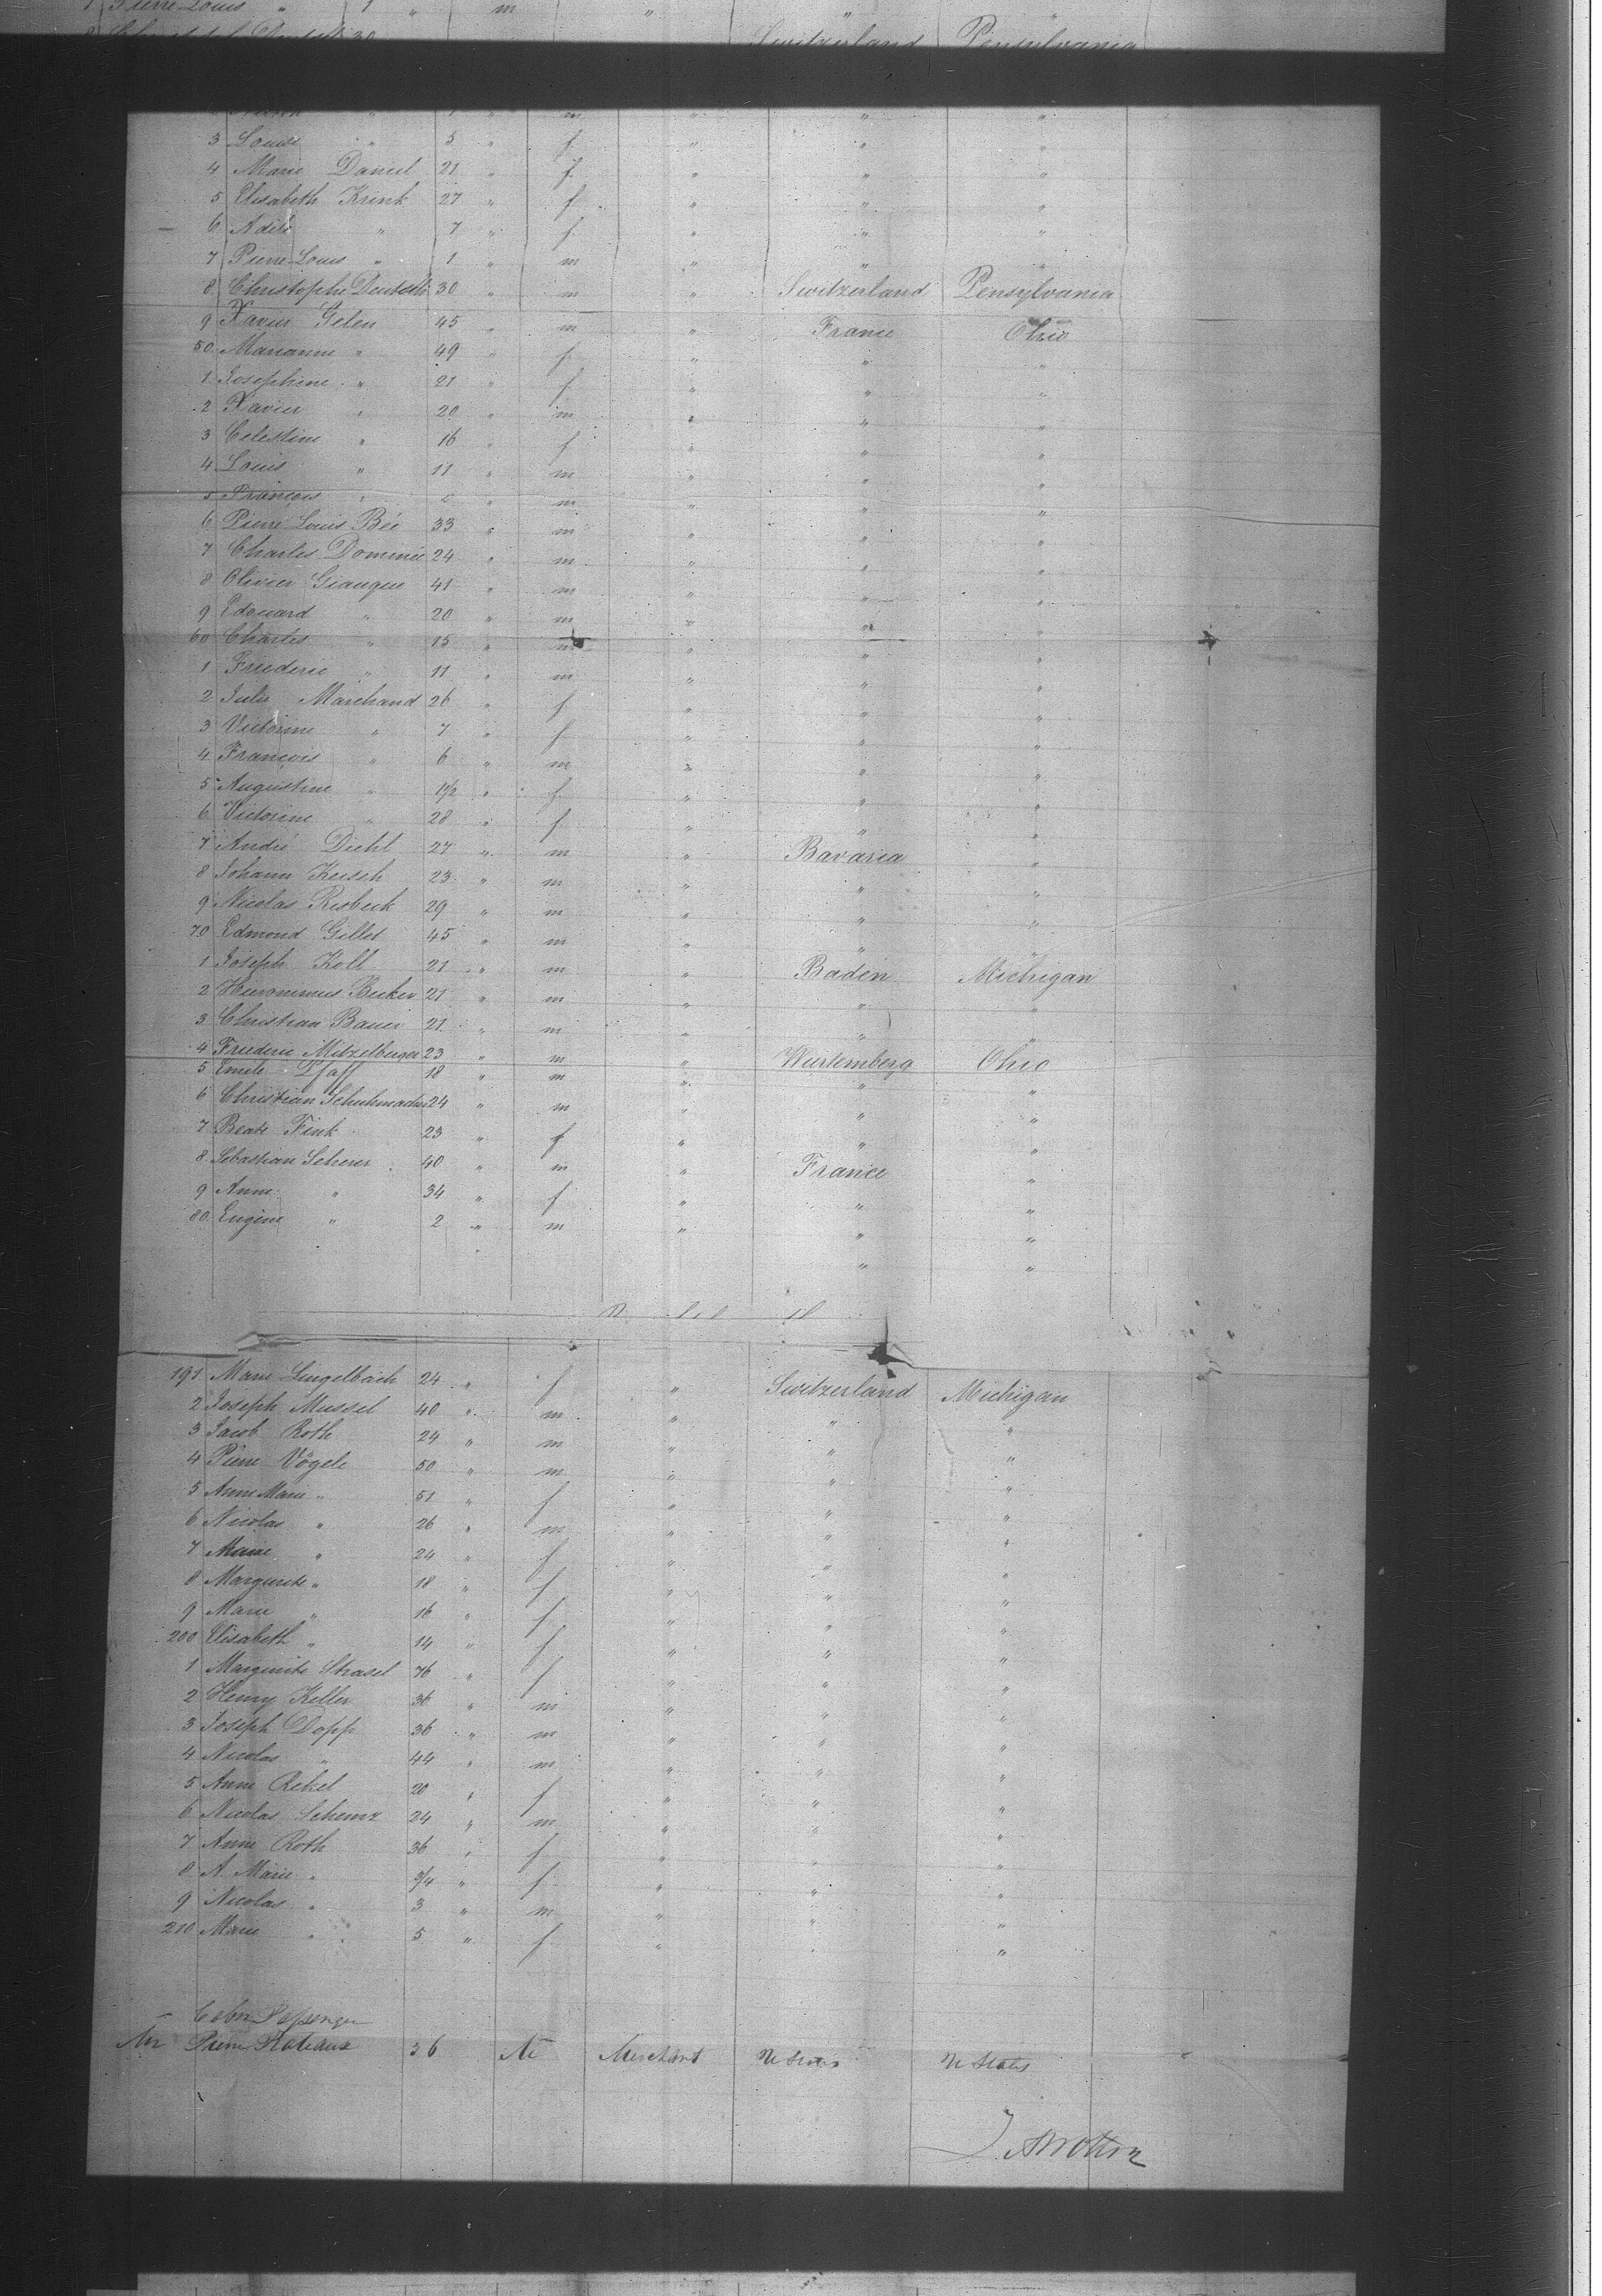 Pierre Louis " 1 " m " " "
Switzerland Pensylvania
3 Louise " 5 " f " " "
4 Marie Daniel 21 " f " " "
5 Elisabeth Krink 27 " f " " "
6 Adele " 7 " f " " "
7 Pierre Louis " 1 " m " " "
8 Christophe Deutsch 30 " m " Switzerland Pensylvania
9 Xavier Gelen 45 " m " France Ohio
50 Marianne " 49 " f " " "
1 Josephine " 21 " f " " "
2 Xavier " 20 " m " " "
3 Celestine " 16 " f " " "
4 Louis " 11 " m " " "
5 François " " m " " "
6 Pierre Louis Bée 33 " m " " "
7 Charles Dominé 24 " m " " "
8 Olivier Giauque 41 " m " " "
9 Edouard " 20 " m " " "
60 Charles " 15 " m " " "
1 Friederic " 11 " m " " "
2 Julie Marchand 26 " f " " "
3 Victorine " 7 " f " " "
4 François " 6 " m " " "
5 Augustine " 1½ " f " " "
6 Victorine " 28 " f " " "
7 André Diehl 27 " m " Bavaria "
8 Johann Keisch 23 " m " " "
9 Nicolas Risbeck 29 " m " " "
70 Edmond Gillet 45 " m " " "
1 Joseph Koll 21 " m " Baden Michigan
2 Hieronimus Becker 21 " m " " "
3 Christian Bauer 21 " m " " "
4 Friederic Mitzelberger 23 " m " Wurtemberg Ohio
5 Emile Pfaff 18 " m " " "
6 Christian Schuhmacher 24 " m " " "
7 Beate Fink 23 " f " " "
8 Sebastian Scherer 40 " m " France "
9 Anne " 34 " f " " "
80 Eugène " 2 " m " " "
191 Marie Lengelbach 24 " f " Switzerland Michigan
2 Joseph Mussel 40 " m " " "
3 Jacob Roth 24 " m " " "
4 Pierre Vögele 50 " m " " "
5 Anne Marie " 51 " f " " "
6 Nicolas " 26 " m " " "
7 Marie " 24 " f " " "
8 Marguerite " 18 " f " " "
9 Marie " 16 " f " " "
200 Elisabeth " 14 " f " " "
1 Marguerite Strasel 76 " f " " "
2 Henry Keller 36 " m " " "
3 Joseph Dopp 36 " m " " "
4 Nicolas " 44 " m " " "
5 Anne Rekel 20 " f " " "
6 Nicolas Schenz 24 " m " " "
7 Anne Roth 36 " f " " "
8 A. Marie " ¾ " f " " "
9 Nicolas " 3 " m " " "
210 Marie " 5 " f " " "
Cabin Passenger
Pierre 36 M Merchant U States U States